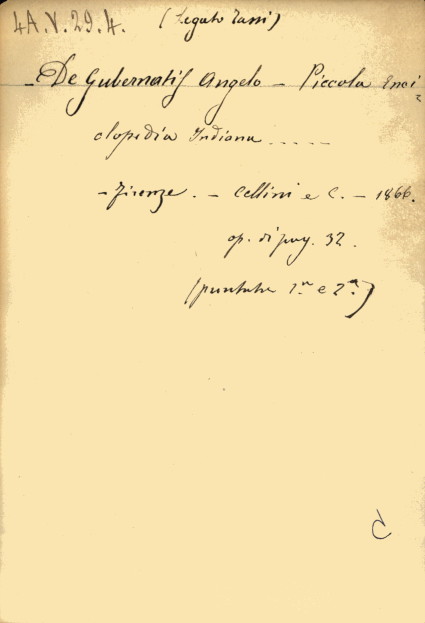 4A.V.29.4. (Legato Tassi)
- De Gubernatis Angelo - Piccola Enci=
clopedia Indiana .....
- Firenze. - Cellini e C. - 1866.
op. di pag. 32.
(puntata 1ª e 2ª)
C